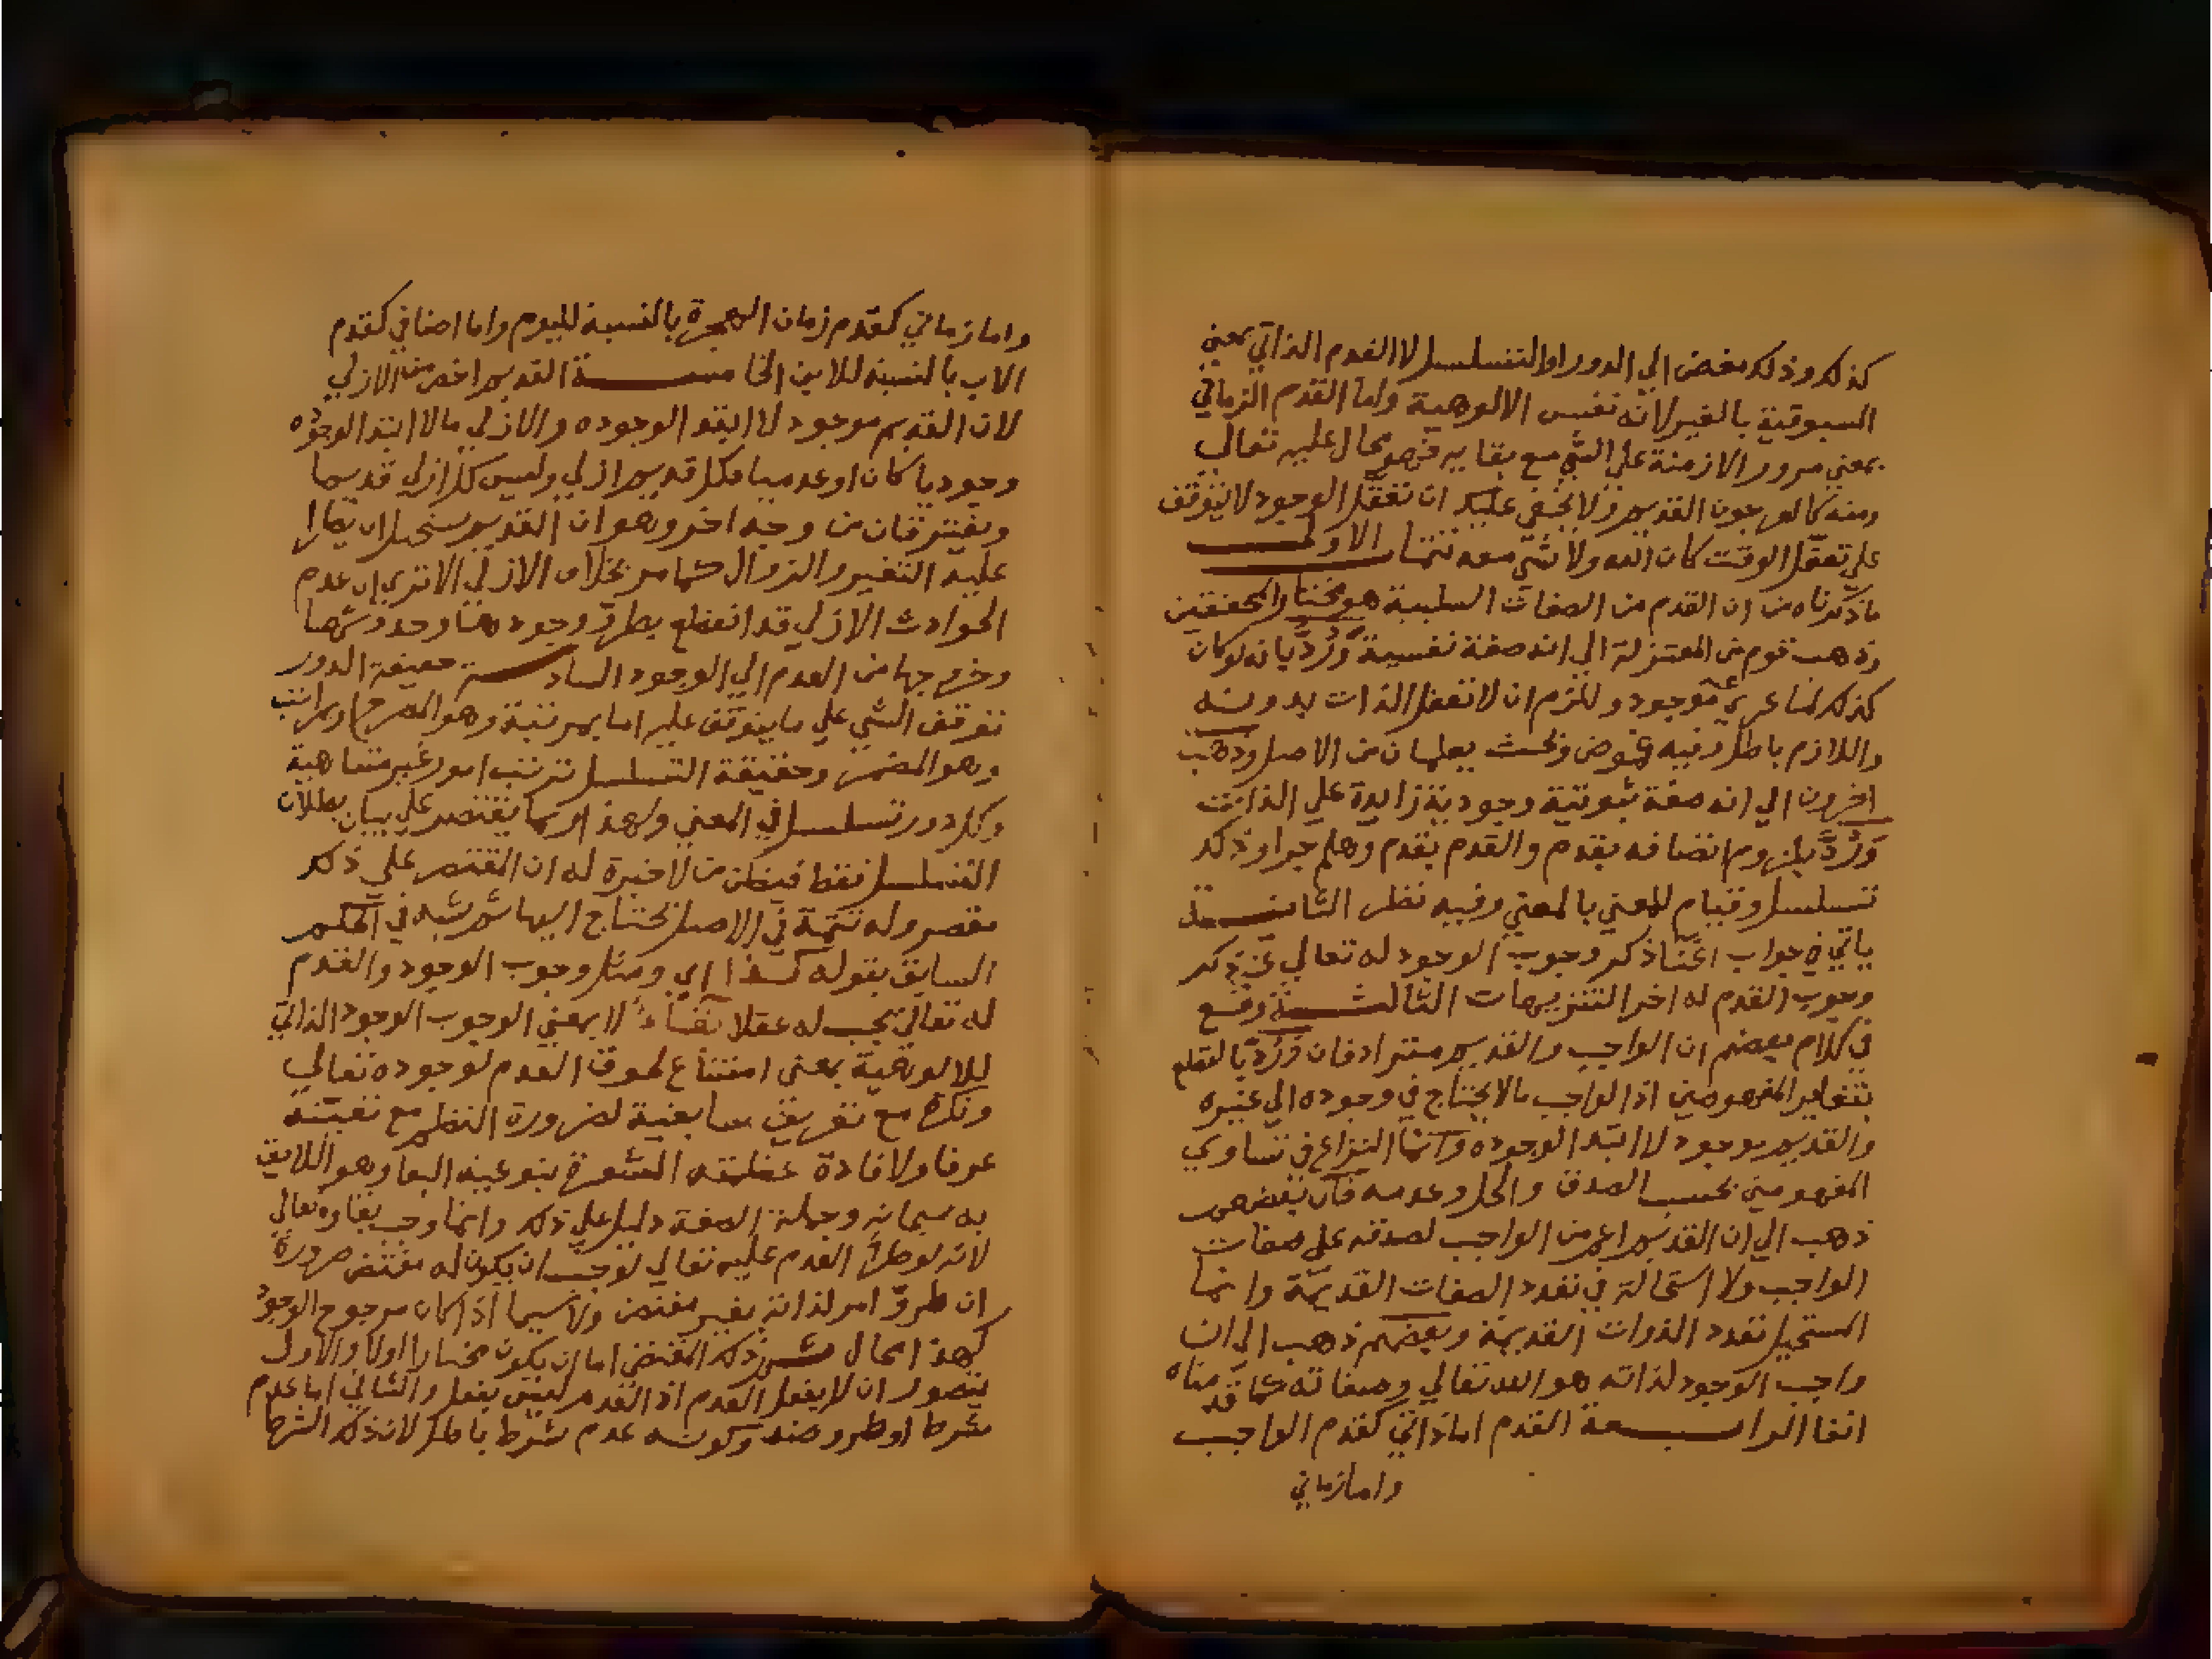 كذلك وذلك مفض الي الدور او التسلسل لا القدم الذاتي بمعني
المسبوقية بالغير لانه نفيس الالوهية واما القدم الزماني
بمعني مرور الازمنة علي الشي مع بقايه فهو محال عليه تعالي
ومنه كالعرجون القديم ولا يخفي عليك ان تعقل الوجود لا يتوقف
علي تعقل الوقت كان الله ولا شي معه تتمات الاولي
ما ذكرناه من ان القدم من الصفات السلبية هو مختار المحققين
وذهب قوم من المعتزلة الي انه صفة نفسية ورد بانه لو كان
كذلك لما عري عنه موجود وللزم ان لا تعقل الذات بدونه
واللازم باطل وفيه غموض وبحث يعلمان من الاصل وذهب
اخرون الي انه صفة ثبوتية وجودية زايدة علي الذات
ورد بلزوم اتصافه بقدم والقدم بقدم وهلم جرا وذلك
تسلسل وقيام للمعني بالمعني وفيه نظر الثانية
ياتي في جواب اغنا ذكر وجوب الوجود له تعالي عن ذكر
وجوب القدم له اخر التنزيهات الثالثة وقع
في كلام بعضهم ان الواجب والقديم مترادفان ورد بالقطع
بتغاير المفهومين اذ الواجب ما لا يحتاج في وجوده الي غيره
والقديم موجود لا ابتدا لوجوده وانما النزاع في تساوي
المفهومين بحسب الصدق والحمل وعدمه فان بعضهم
ذهب الي ان القديم اعم من الواجب لصدقه علي صفات
الواجب ولا استحالة في تعدد الصفات القديمة وانما
المستحيل تعدد الذوات القديمة وبعضهم ذهب الي ان
واجب الوجود لذاته هو الله تعالي وصفاته كما قدمناه
انفا الرابعة القدم اما ذاتي كقدم الواجب
واما زماني
واما زماني كقدم زمان الهجرة بالنسبة لليوم واما اضافي كقدم
الاب بالنسبة للابن الخامسة القديم اخص من الازلي
لان القديم موجود لا ابتدا لوجوده والازلي ما لا ابتدا لوجوده
وجوديا كان او عدميا فكل قديم ازلي وليس كل ازلي قديما
ويفترقان من وجه اخر وهو ان القديم يستحيل ان يطرا
عليه التغير والزوال كما مر بخلاف الازلي الا تري ان عدم
الحوادث الازلي قد انقطع بطرو وجودها وحدوثها
وخروجها من العدم الي الوجود السادسة حقيقة الدور
توقف الشي علي ما يتوقف عليه اما بمرتبة وهو المصرح او بمراتب
وهو المضمر وحقيقة التسلسل ترتب امور غير متناهية
وكل دور تسلسل في المعني ولهذا ربما يقتصر علي بيان بطلان
التسلسل فقط فيظن من لا خبرة له ان المقتصر علي ذلك
مقصر وله تتمة في الاصل نحتاج اليها ثم شبه في الحكم
السابق بقوله كذا اي ومثل وجوب الوجود والقدم
له تعالي يجب له عقلا بقاء لا بمعني الوجوب الوجود الذاتي
للالوهية بمعني امتناع لحوق العدم لوجوده تعالي
ونكره مع تعريف سابقيه لضرورة النظم مع تعينه
عرفا ولافادة عظمته المشعرة بنوعيه البقا وهو اللايق
به سبحانه وجملة الصفة دليل علي ذلك وانما وجب بقاوه تعالي
لانه لو طرا العدم عليه تعالي لوجب ان يكون له مقتض ضرورة
ان طرو امر لذاته بغير مقتض ولا سيما اذا كان مرجوح الوجود
كهذا محال ثم ذلك المقتضي اما ان يكون مختارا اولا والاول
يتصور ان لا يفعل العدم اذ العدم ليس بفعل والثاني اما عدم
شرط او طرو ضد وكونه عدم شرط باطل لان ذلك الشرط